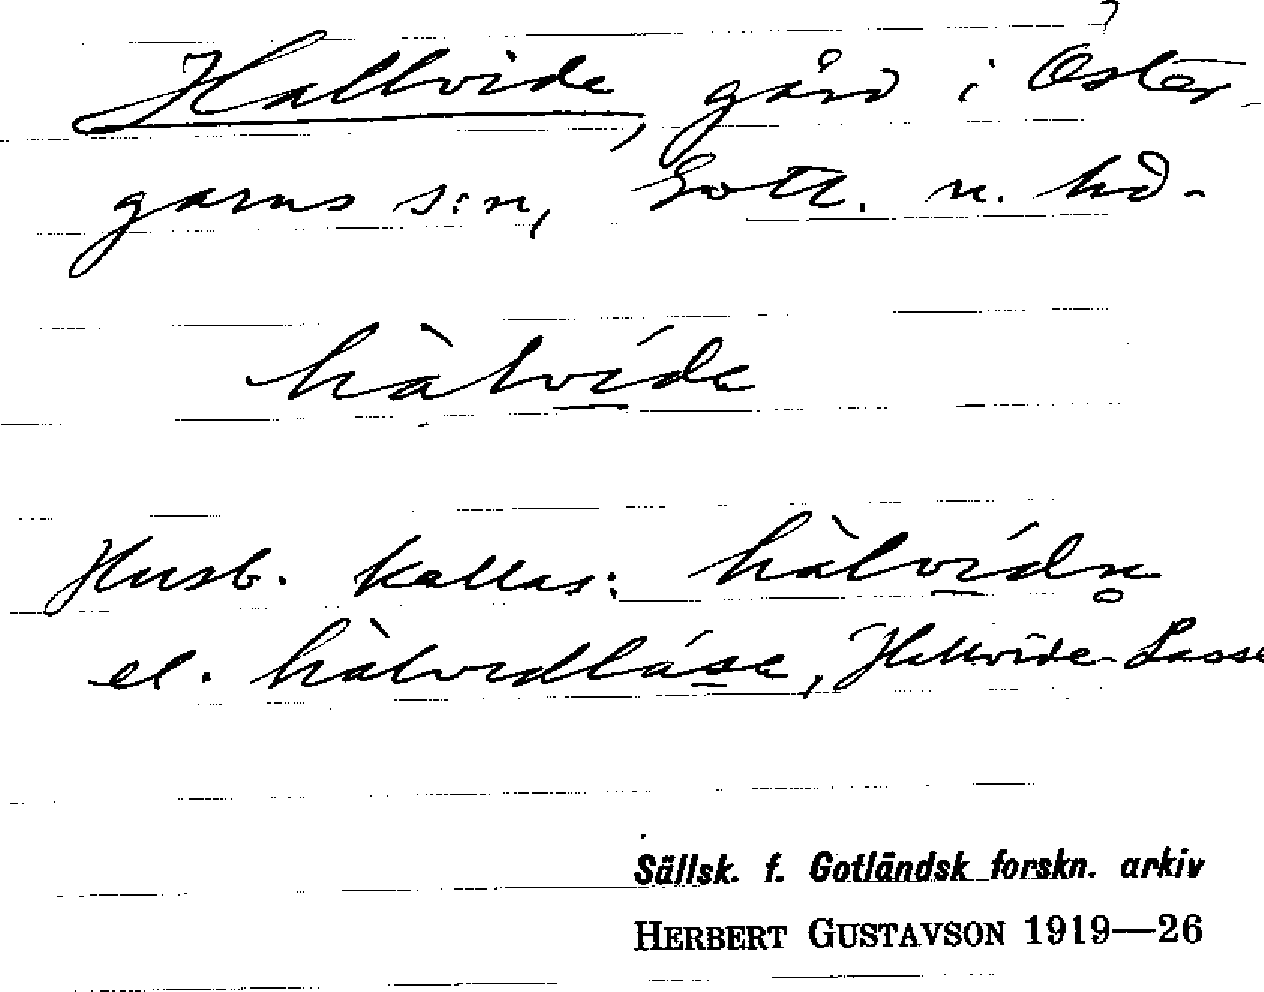 Hallvide, gård i Öster-
garns s:n, Gotl. n. hd.
hàlvíde
Husb. kallas: hàlvídn̥
el. hàlvidlása, Hallvide-Lasse
Sällsk. f. Gotländsk forskn. arkiv
HERBERT GUSTAVSON 1919—26